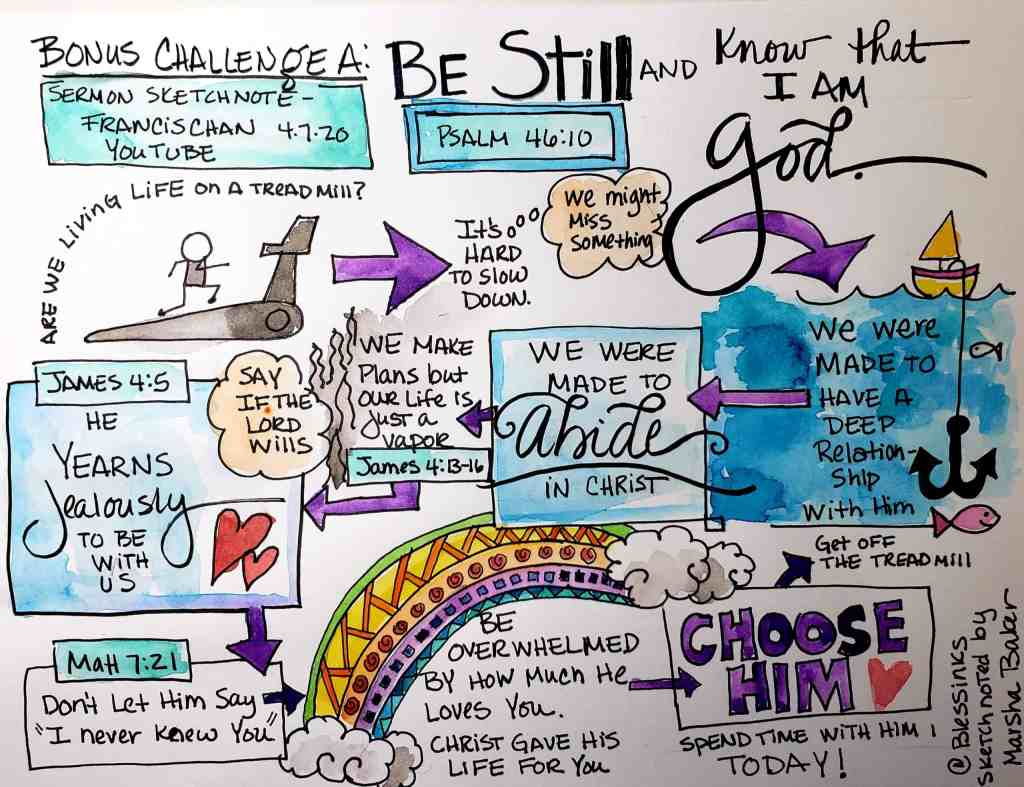 BONUS CHALLENGE A:
SERMON SKETCHNOTE -
FRANCIS CHAN 4.7.20
YOUTUBE
BE Still AND Know that
I AM
god.
PSALM 46:10
ARE WE LIVING LIFE ON A TREADMILL?
It's
HARD
TO SLOW
DOWN.
We might
MISS
Something
We were
MADE TO
HAVE A
DEEP
Relation-
Ship
With Him
WE WERE
MADE TO
abide
IN CHRIST
WE MAKE
Plans but
OUR LIFE is
just a
vapor
James 4:13-16
SAY
IF THE
LORD
WILLS
JAMES 4:5
HE
YEARNS
Jealously
TO BE
WITH
US
Matt 7:21
Don't Let Him Say
"I never knew You"
BE
OVERWHELMED
BY HOW MUCH HE
LOVES YOU.
CHRIST GAVE HIS
LIFE FOR YOU
CHOOSE
HIM
Get OFF
THE TREADMILL
SPEND TIME WITH HIM
TODAY!
@Blessinks
Sketchnoted by
Marsha Baker